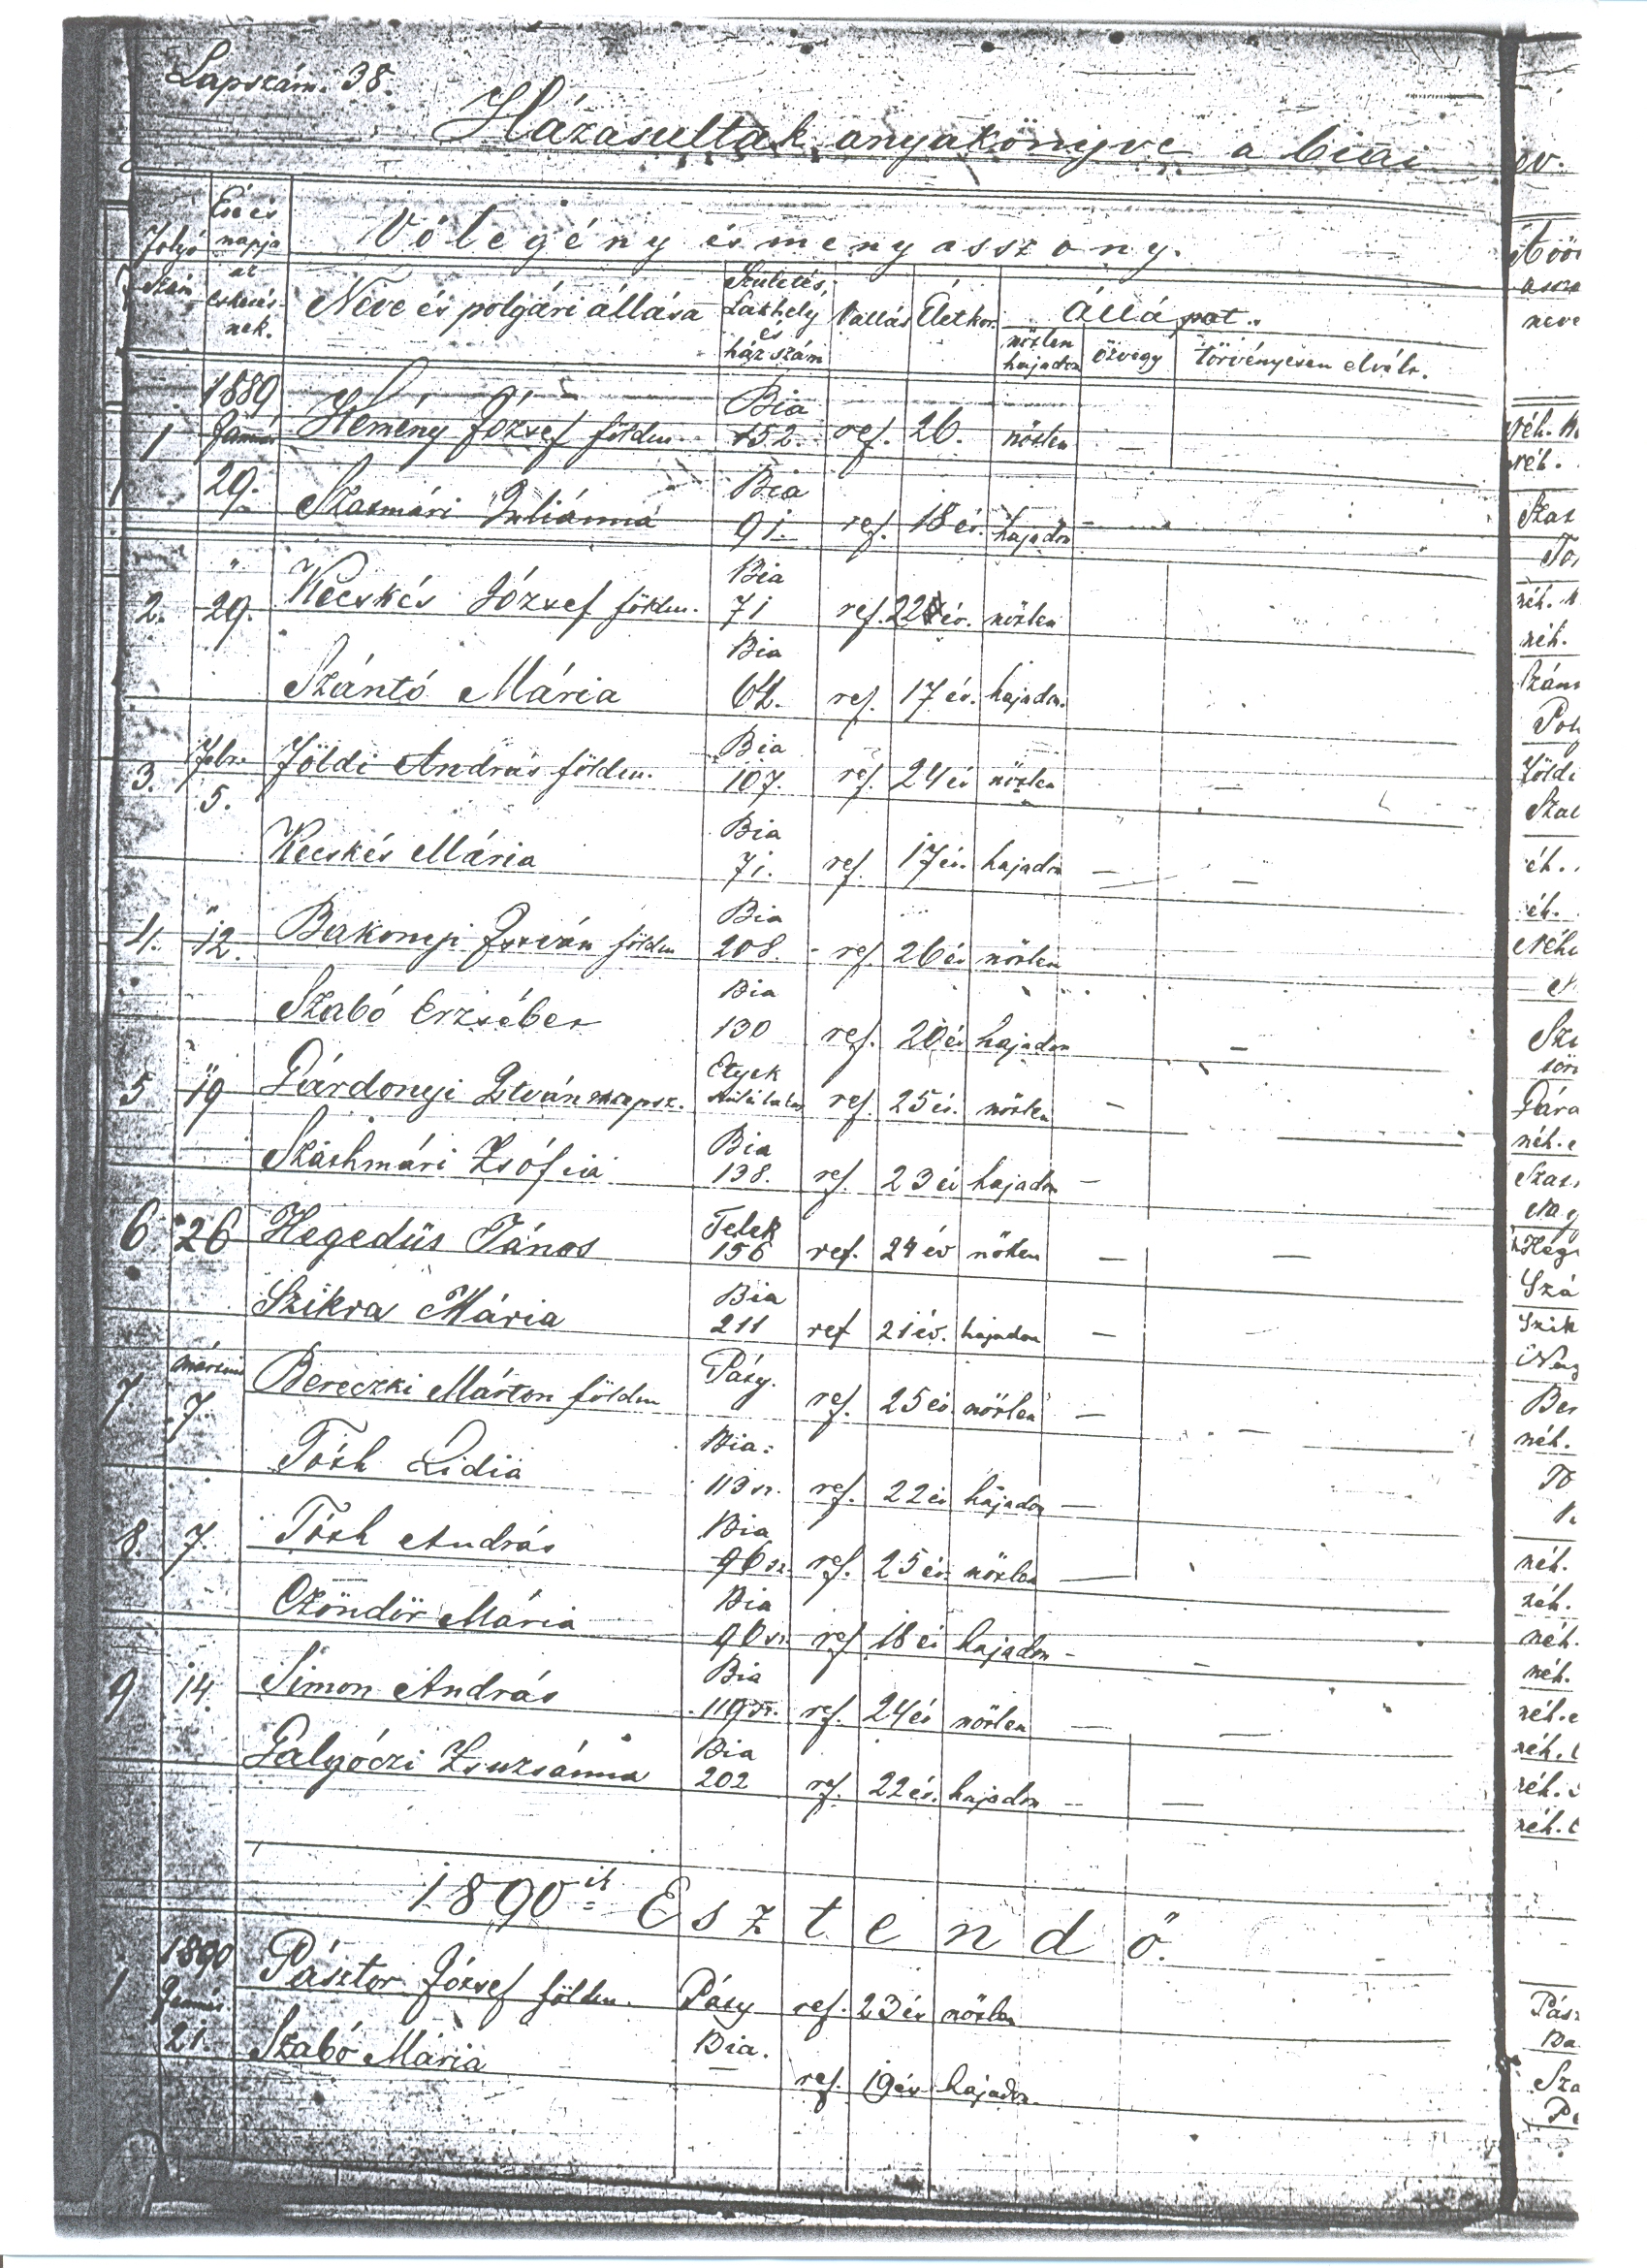 Lapszám. 38.
Házasultak anyakönyve a biai ev.
Folyó Szám
Év és napja az esketésnek.
Vőlegény és menyasszony.
Neve és polgári állása
Születés, Lakhely és házszám
Vallás
Életkor.
Állapot.
nőtlen hajadon
özvegy
törvényesen elvált.
1889 Bia
1 Január Kemény József földm. 152. ref. 26. nőtlen —
29. Bia
Szatmári Juliánna 91. ref. 18 év. hajadon —
" Bia
2. 29. Kecskés József földm. 71 ref. 22 év. nőtlen
Bia
Szántó Mária 64. ref. 17 év. hajadon.
Febr. Bia
3. 5. Földi András földm. 107. ref. 24 év nőtlen —
Bia
Kecskés Mária 71. ref. 17 év. hajadon — —
" Bia
4. 12. Bakonyi István földm 208. ref. 26 év nőtlen
Bia
Szabó Erzsébet 130 ref. 20 év hajadon —
" Etyek
5 19 Gárdonyi István ref. 25 év. nőtlen —
Bia
Szathmári Zsófia 138. ref. 23 év hajadon —
Telek
6 " 26 Hegedüs János 156 ref. 24 év nőtlen — —
Bia
Szikra Mária 211 ref 21 év. hajadon —
március Pázy.
7 7. Bereczki Márton földm ref. 25 év nőtlen — —
Bia.
Tóth Lidia 113 sz. ref. 22 év hajadon —
Bia
8. 7. Tóth András 96 sz. ref. 25 év nőtlen —
Bia
Czöndör Mária 96 sz. ref. 18 év hajadon — —
Bia
9 14. Simon András 119 sz. ref. 24 év nőtlen — —
Bia
Galgóczi Zsuzsánna 202 ref. 22 év. hajadon — —
1890 ik Esztendő.
1890
1 Január. Pásztor József földm. Pázy ref. 23 év nőtlen
21. Szabó Mária Bia. ref. 19 év hajadon.